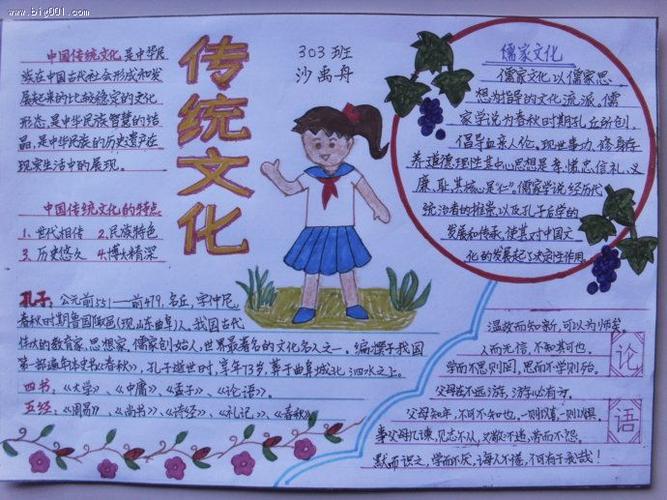 www.big001.com
传统文化
303班
沙禹舟
中国传统文化是中华民
族在中国古代社会形成和发
展起来的比较稳定的文化
形态,是中华民族智慧的结
晶,是中华民族的历史遗产在
现实生活中的展现。
中国传统文化的特点
1、世代相传 2、民族特色
3、历史悠久 4、博大精深
儒家文化
儒家文化以儒家思
想为指导的文化流派。儒
家学说为春秋时期孔丘所创,
倡导血亲人伦、现世事功、修身存
养、道德理性其中心思想是孝、悌、忠、信、礼、义、
廉、耻,其核心是“仁”。儒家学说经历代
统治者的推崇,以及孔子后学的
发展和传承,使其对中国文
化的发展起了决定性作用。
孔子:公元前551—前479,名丘,字仲尼。
春秋时期鲁国陬邑(现山东曲阜)人。我国古代
伟大的教育家、思想家,儒家创始人,世界最著名的文化名人之一。编撰了我国
第一部编年体史书《春秋》。孔子逝世时,享年73岁,葬于曲阜城北泗水之上。
四书:《大学》、《中庸》、《孟子》、《论语》。
五经:《周易》、《尚书》、《诗经》、《礼记》、《春秋》
论语
温故而知新,可以为师矣。
人而无信,不知其可也。
学而不思则罔,思而不学则殆。
父母在不远游,游必有方。
父母知年,不可不知也,一则以喜,一则以惧。
事父母几谏,见志不从,又敬不违,劳而不怨。
默而识之,学而不厌,诲人不倦,